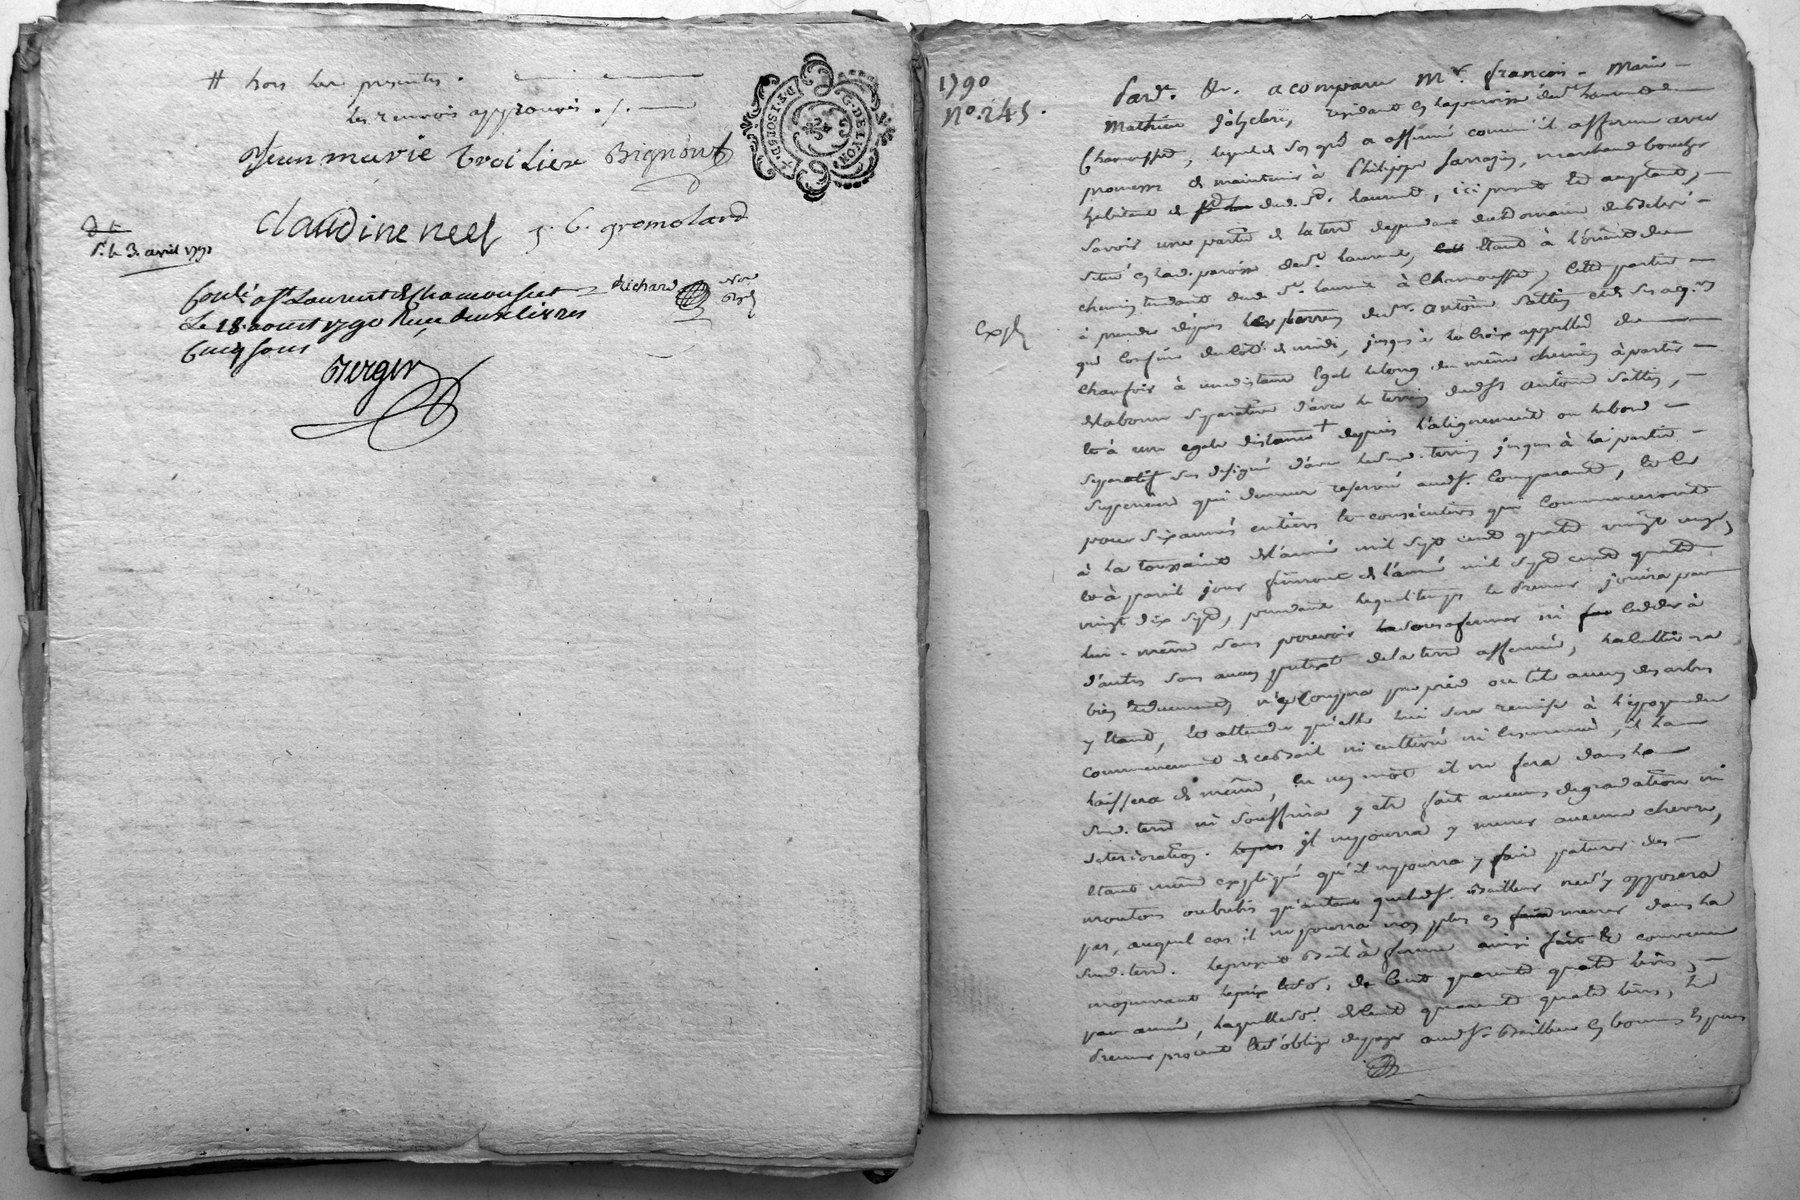 # hors les presentes.
les renvois approuvés ./.
Jean marie troilier Bignon
G. DE LYON
DEUX SOLS D. P. F.
Claudine neel j. b. gremolard
D. t.
S. le 3. avril 1791
Conlé a st Laurent de Chamousset Richard Nore
Le 18. aoust 1790 Reçu deux livres
Cinq sous
Berger
1790
No. 245.
Expé
Pardt. &c. a comparu Mr. françois - Marie -
Mathieu résidant en la paroisse de st. Laurent de
Chamousset, lequel de son gré a affermé comme il afferme avec
promesse de maintenir à Philippe Sarrazin, marchand boucher
habitant de dud. St. laurent, ici present et acceptant, -
savoir une partie de la terre dependant du domaine
situé en lad. paroisse de st. laurent, étant à l'orient du
chemin tendant dud. St. laurent à Chamousset, cette partie -
à prendre depuis les terrein du sr. antoine
qui confine du côté de midi, jusques à la croix appellée du
Chaufois à une distance égale le long du même chemin à partir -
de la borne separative d'avec le terrein dudst antoine -
et à une egale distance + depuis l'alignement ou la borne -
separatif sus designé d'avec le susd. terrein jusques à la partie -
superieure qui demeure reservée audt. Comparant, et ce
pour six années entieres et consécutives qui commenceront
à la toussaint de l'année mil sept cent quatre vingt onze,
et à pareil jour finiront de l'année mil sept cent quatre
vingt dix sept, pendant lequel temps le preneur jouira par
lui - même sans pouvoir la sousafermer ni ceder à
d'autres sous aucun pretexte de la terre affermée, la cultivera
bien et duement, n'y coupera par pied ou tête aucun des arbres
y étant, et attendu qu'elle lui sera remise à l'eppoque du
commencement de ce bail ni cultivée ni ensemencée, il la
laissera de même, en un mot il ne fera dans la
susd. terre ni souffrira y etre fait aucunes degradations ni
deteriorations. il ne pourra y mener aucune chevre,
étant même expliqué qu'il ne pourra y faire paturer des -
moutons ou brebis qu'autant que ledt. Bailleur ne s'y opposera
pas, auquel cas il ne pourra non plus en mener dans la
susd. terre. le present Bail à ferme ainsi fait et convenu
moyennant le prix et so. de cent quarante quatre livres, -
par année, laquelle so. de cent quarante quatre livres, le
preneur promet et s'oblige de payer audt. Bailleur en bonnes especes